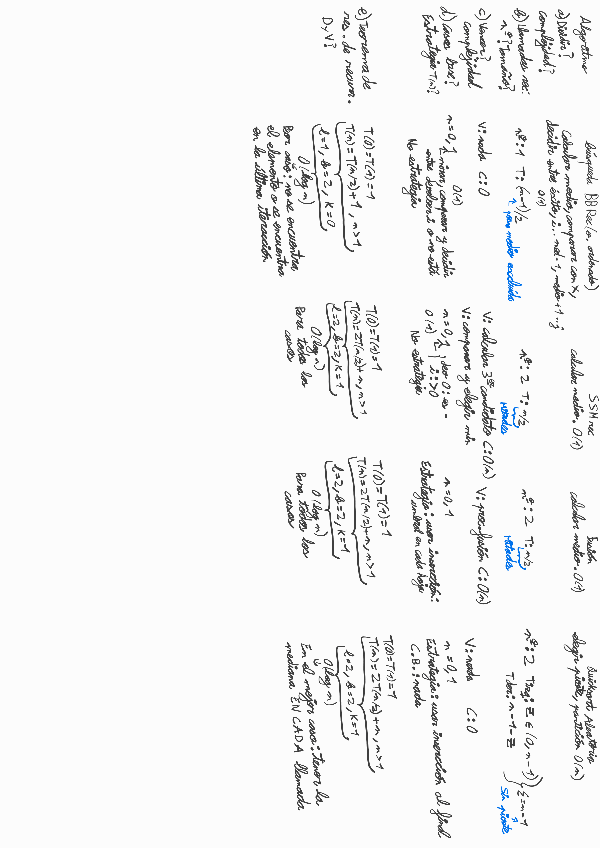 Algoritmo
a) Dividir?
complejidad?
b) Llamadas rec:
nº? Tamaño?
c) Vencer?
complejidad
d) Casos base?
Estrategia T(n)?
e) Teorema de
res. de recurr.
D y V?
Búsqueda BBRec (v. ordenado)
Calcular medio, comparar con x,
decidir entre éxito, i..med-1, medio+1..j
O(1)
nº: 1 T: (n-1)/2
por medio excluido
V: nada C: 0
n=0,1 mirar, comparar y decidir
O(1)
entre devolver i o no está
No estrategia
T(0)=T(1)=1
T(n)=T(n/2)+1, n>1
l=1, b=2, k=0,
O(log n)
Peor caso: no se encuentra
el elemento o se encuentra
en la última iteración
SSM rec
calcular medio. O(1)
nº: 2 T: n/2
Mitades
V: calcular 3er candidato C: O(n)
V: comparar y elegir máx
n=0,1
O(1)
No estrategia
T(0)=T(1)=1
T(n)=2T(n/2)+n, n>1
l=2, b=2, k=1,
O(log n)
Para todos los
casos
Fusión
calcular medio. O(1)
nº: 2 T: n/2
Mitades
V: proc. fusión C: O(n)
n=0,1
Estrategia: usar inserción:
umbral en cada hoja
T(0)=T(1)=1
T(n)=2T(n/2)+n, n>1
l=2, b=2, k=1,
O(log n)
Para todos los
casos
Quicksort Aleatorio
elegir pivote, partición O(n)
nº: 2 Tizq: z ∈ (0, n-1)
Tder: n-1-z
Σ=n-1
Sin pivote
V: nada C: 0
n=0,1
Estrategia: usar inserción al final
C.B.: nada
T(0)=T(1)=1
T(n)=2T(n/2)+n, n>1
l=2, b=2, k=1
O(log n)
En el mejor caso: tener la
mediana EN CADA llamada